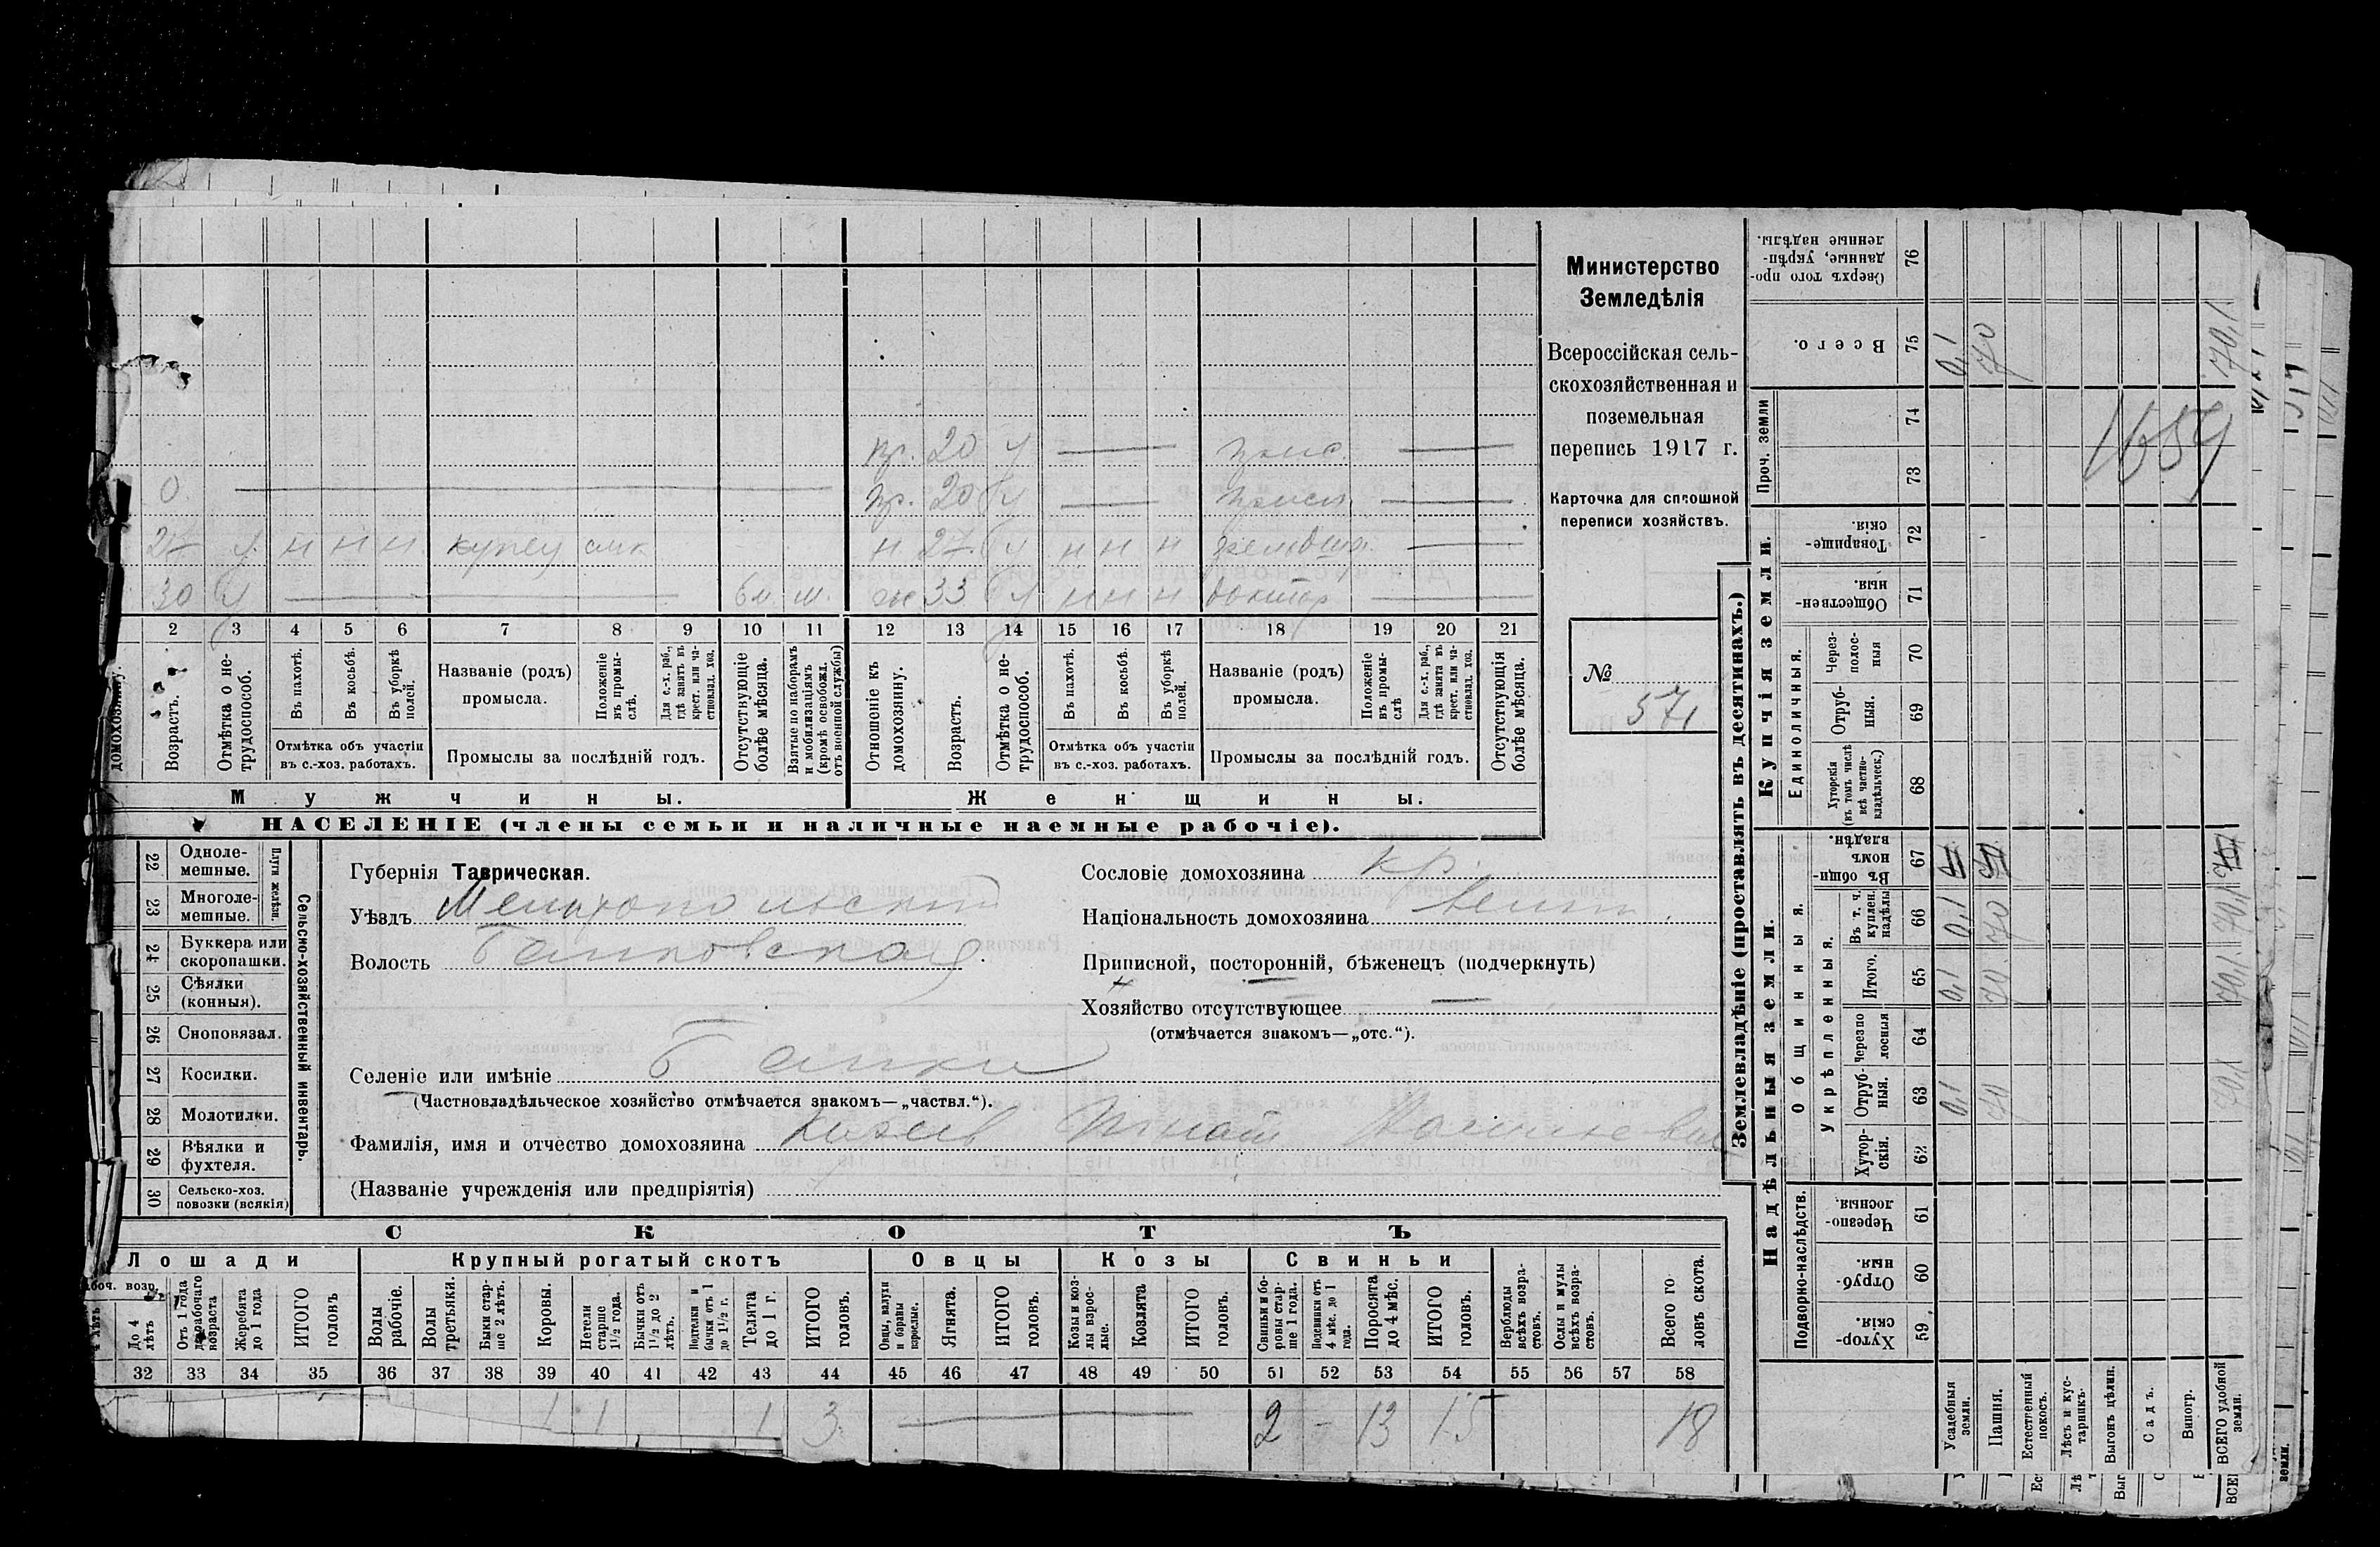 пр. 20 у — прис. —
0 — пр. 20 у — —
27 у. н н н. купец н 27. у н н н —
30 у — 6 м. м. 33 у н н н доктор —
2 3 4 5 6 7 8 9 10 11 12 13 14 15 16 17 18 19 20 21
домохозяину.
Возрастъ.
Отмѣтка о нетрудоспособ.
Въ пахотѣ.
Въ косьбѣ.
Въ уборкѣ полей.
Отмѣтка объ участіи въ с.-хоз. работахъ.
Названіе (родъ) промысла.
Положеніе въ промыслѣ.
Для с.-х. раб., гдѣ занятъ въ крест. или частновлад. хоз.
Промыслы за послѣдній годъ.
Отсутствующіе болѣе мѣсяца.
Взятые по наборамъ и мобилизаціямъ (кромѣ освобожд. отъ военной службы)
Отношеніе къ домохозяину.
Возрастъ.
Отмѣтка о нетрудоспособ.
Въ пахотѣ.
Въ косьбѣ.
Въ уборкѣ полей.
Отмѣтка объ участіи въ с.-хоз. работахъ.
Названіе (родъ) промысла.
Положеніе въ промыслѣ
Для с.-х. раб., гдѣ занята въ крест. или частновлад. хоз.
Промыслы за послѣдній годъ.
Отсутствующія болѣе мѣсяца.
Мужчины. Женщины.
НАСЕЛЕНІЕ (члены семьи и наличные наемные рабочіе).
Министерство
Земледѣлія
Всероссійская сель-
скохозяйственная и
поземельная
перепись 1917 г.
Карточка для сплошной
переписи хозяйствъ.
№
571
Сельско-хозяйственный инвентарь.
Плуги желѣзн.
22 Одноле-
мешные.
23 Многоле-
мешные.
24 Буккера или
скоропашки.
25 Сѣялки
(конныя).
26 Сноповязал.
27 Косилки.
28 Молотилки.
29 Вѣялки и
фухтеля.
30 Сельско-хоз.
повозки (всякія)
Губернія Таврическая.
Уѣздъ Мелитопольский
Волость Балковская
Селеніе или имѣніе Балки
(Частновладѣльческое хозяйство отмѣчается знакомъ—„частвл.“).
Фамилія, имя и отчество домохозяина Игнат
(Названіе учрежденія или предпріятія)
Сословіе домохозяина кр.
Національность домохозяина велик.
Приписной, посторонній, бѣженецъ (подчеркнуть)
Хозяйство отсутствующее —
(отмѣчается знакомъ—„отс.“).
СКОТЪ
Лошади
Крупный рогатый скотъ
Овцы
Козы
Свиньи
До 4 лѣтъ
Отъ 1 года до рабочаго возраста
Жеребята до 1 года
ИТОГО головъ
Волы рабочіе.
Волы третьяки.
Быки старше 2 лѣтъ.
Коровы.
Нетели старше 1½ года.
Бычки отъ 1½ до 2 лѣтъ.
Подтелки и бычки отъ 1 до 1½ г.
Телята до 1 г.
ИТОГО головъ.
Овцы, валухи и бараны взрослые.
Ягнята.
ИТОГО головъ.
Козы и козлы взрослые.
Козлята
ИТОГО головъ.
Свиньи и боровы старше 1 года.
Подсвинки отъ 4 мѣс. до 1 года.
Поросята до 4 мѣс.
ИТОГО головъ.
Верблюды всѣхъ возрастовъ.
Ослы и мулы всѣхъ возрастовъ.
Всего головъ скота.
32 33 34 35 36 37 38 39 40 41 42 43 44 45 46 47 48 49 50 51 52 53 54 55 56 57 58
1 1 1 3 — 2 - 13 15 18
Землевладѣніе (проставлять въ десятинахъ.)
Надѣльныя земли.
Купчія земли.
Проч. земли
Подворно-наслѣдств.
Общинныя.
Укрѣпленныя.
Единоличныя.
59 Хуторскія.
60 Отрубныя.
61 Черезполосныя
62 Хуторскія.
63 Отрубныя. 0,1 70 70,1
64 Черезполосныя
65 Итого. 0,1 70 70,1
66 Въ т. ч. куплен. надѣлы 0,1 70 70,1
67 Въ общинномъ владѣн.
68 Хуторскія (въ томъ числѣ всѣ частновладѣльческ.)
69 Отрубныя.
70 Черезполосныя
71 Общественныя.
72 Товарищескія.
73
74
75 Всего. 0,1 70 70,1
76 Сверхъ того проданные, укрѣпленные надѣлы.
1659
Усадебныя земли.
Пашня.
Естественный покосъ.
Лѣсъ и кустарникъ.
Выгонъ цѣлин.
Садъ.
Виногр.
ВСЕГО удобной земли.